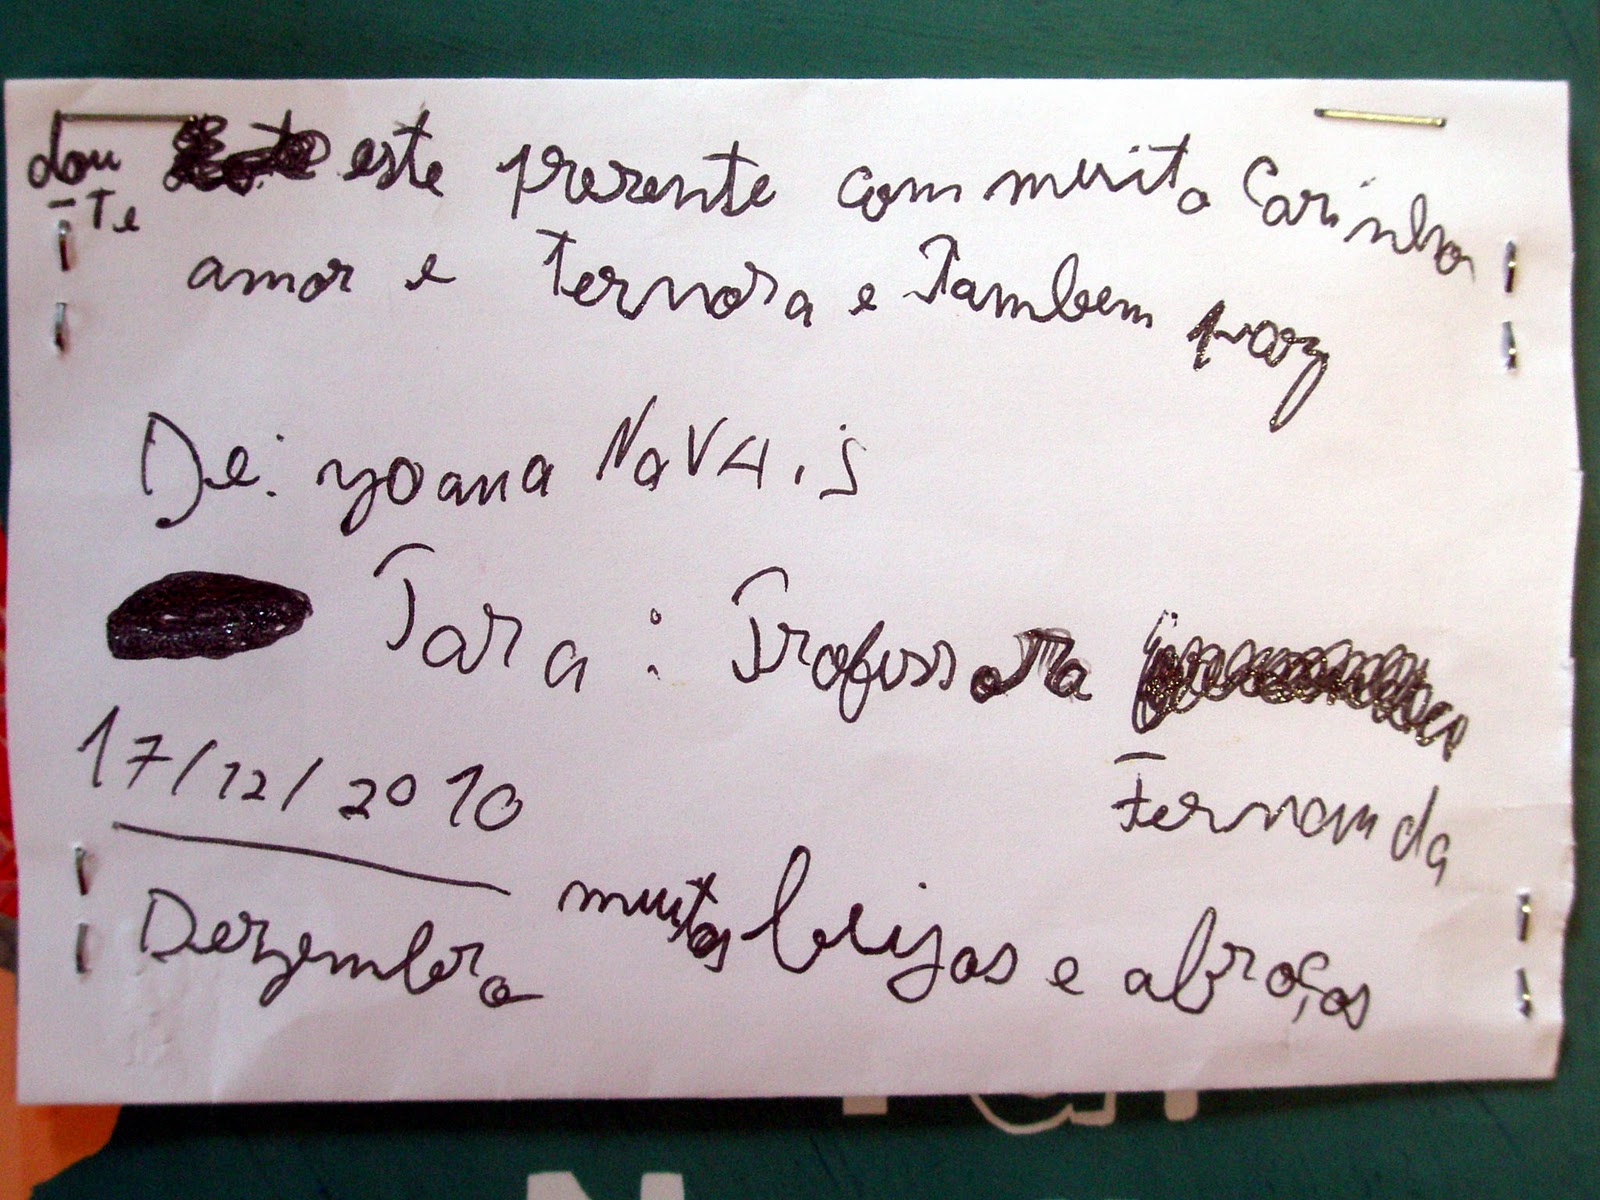 dou
-Te este presente com muito Carinho
amor e ternora e Tambem paz
De: yoana NaVais
Para: Professora
Fernanda
17/12/2010
Dezembro muitos beijos e abraços